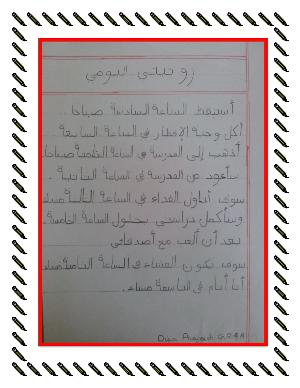 روتيني اليومي
أستيقظ الساعة السادسة صباحا.
أكل وجبة الإفطار في الساعة السابعة.
أذهب إلى المدرسة في الساعة الثامنة صباحا.
سأعود من المدرسة في الساعة الثانية.
سوف أتناول الغداء في الساعة الثالثة مساء
وسأكمل دراستي بحلول الساعة الخامسة.
بعد أن ألعب مع أصدقائي
سوف يكون العشاء في الساعة الثامنة مساء
أنا أنام في التاسعة مساء.
GR 4A